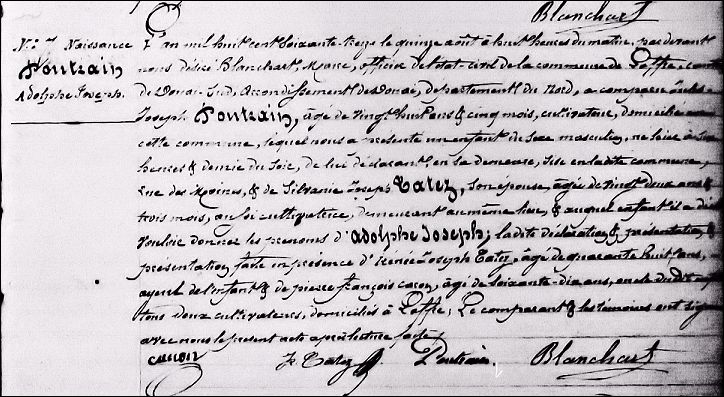 Blanchart
Naissance
Poutrain
Adolphe Joseph.
L'an mil huit cent soixante treize le quinze août à huit heures du matin, par devant
nous désiré Blanchart, Maire, officier de l'état civil de la commune de
de Douai Sud, Arrondissement de Douai, département du Nord, a comparu
Joseph Poutrain, âgé de vingt huit ans & cinq mois, cultivateur, domicilié
cette commune, lequel nous a présenté un enfant du sexe masculin, né hier à
heures & demie du soir, de lui déclarant, en sa demeure, sise en la dite commune,
rue des Moines, & de Silvanie Joseph Tatez, son épouse, âgée de vingt deux ans &
trois mois, aussi cultivatrice, demeurant au même lieu, & auquel enfant il a dit
vouloir donner les prénoms d'Adolphe Joseph, la dite déclaration & présentation &
présentation faite in présence d' Joseph Tatez, âgé de quarante huit ans,
ayeul de l'enfant & de pierre françois caron, âgé de soixante-dix ans, oncle du dit
tous deux cultivateurs, domiciliés à Le comparant & les témoins ont signé
avec nous le présent acte après lecture faite.
caron Tatez Poutrain. Blanchart